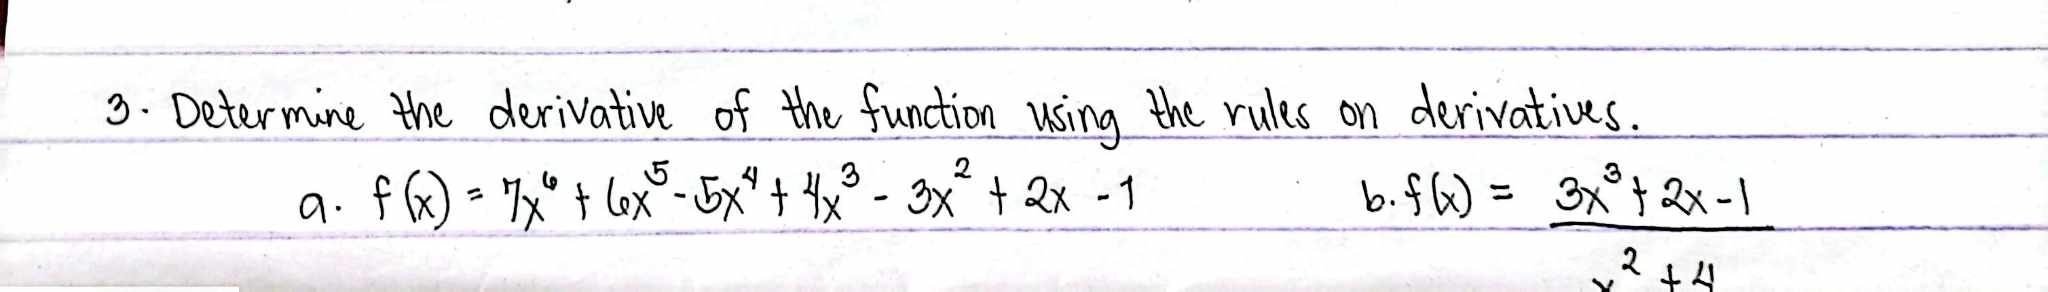 3. Determine the derivative of the function using the rules on derivatives.
a. f(x) = 7x⁶ + 6x⁵ - 5x⁴ + 4x³ - 3x² + 2x - 1
b. f(x) = 3x³ + 2x - 1
x² + 4